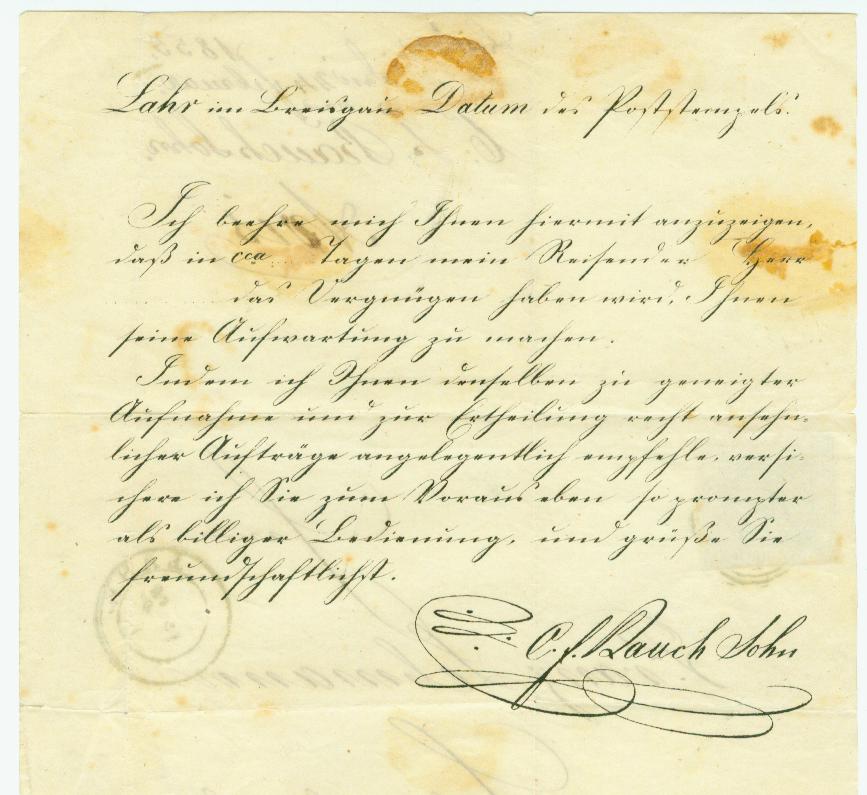 Lahr im Breisgau Datum des Poststempels.
Ich beehre mich Ihnen hiermit anzuzeigen,
daß in cca ... Tagen mein Reisender Herr
das Vergnügen haben wird, Ihnen
seine Aufwartung zu machen.
Indem ich Ihnen denselben zu geneigter
Aufnahme und zur Ertheilung recht ansehn-
licher Aufträge angelegentlich empfehle, versi-
chere ich Sie zum Voraus eben so prompter
als billiger Bedienung, und grüße Sie
freundschaftlichst.
C. F. Rauch Sohn